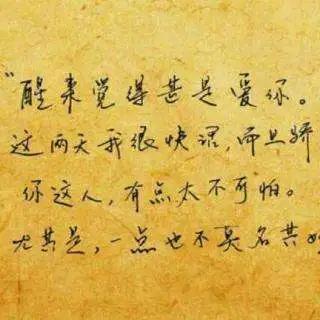 “醒来觉得甚是爱你。
这两天我很快活，而且骄
你这人，有点太不可怕。
尤其是，一点也不莫名其妙